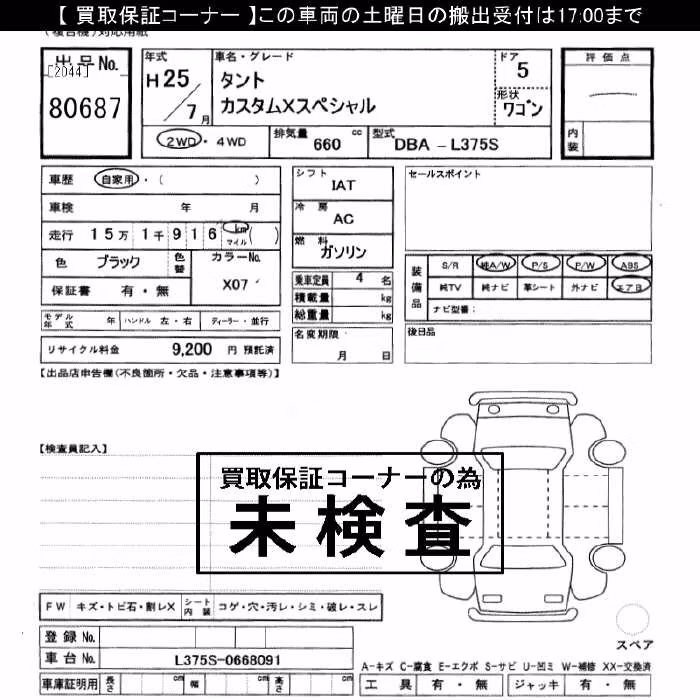 【 買取保証コーナー 】この車両の土曜日の搬出受付は17:00まで
(複合機)対応用紙
出品No.
[2044]
80687
年式
H25/7月
車名・グレード
タント
カスタムXスペシャル
ドア
5
形状
ワゴン
評価点
内装
2WD・4WD
排気量 660 cc
型式 DBA - L375S
車歴 自家用・( )
車検 年 月
走行 15万1千916 km マイル ( )
色 ブラック 色替
カラーNo. X07
保証書 有・無
シフト IAT
冷房 AC
燃料 ガソリン
乗車定員 4 名
積載量 kg
総重量 kg
セールスポイント
装備品
S/R 純A/W P/S P/W ABS
純TV 純ナビ 革シート 外ナビ エアB
ナビ型番:
モデル年式 年 ハンドル 左・右 ディーラー・並行
名変期限 月 日
後日品
リサイクル料金 9,200 円 預託済
【出品店申告欄(不良箇所・欠品・注意事項等)】
【検査員記入】
買取保証コーナーの為
未検査
FW キズ・トビ石・割レX シート内装 コゲ・穴・汚レ・シミ・破レ・スレ
登録No.
車台No. L375S-0668091
車庫証明用 長さ cm 幅 cm 高さ cm
スペア
A-キズ C-腐食 E-エクボ S-サビ U-凹ミ W-補修 XX-交換済
工具 有・無 ジャッキ 有・無